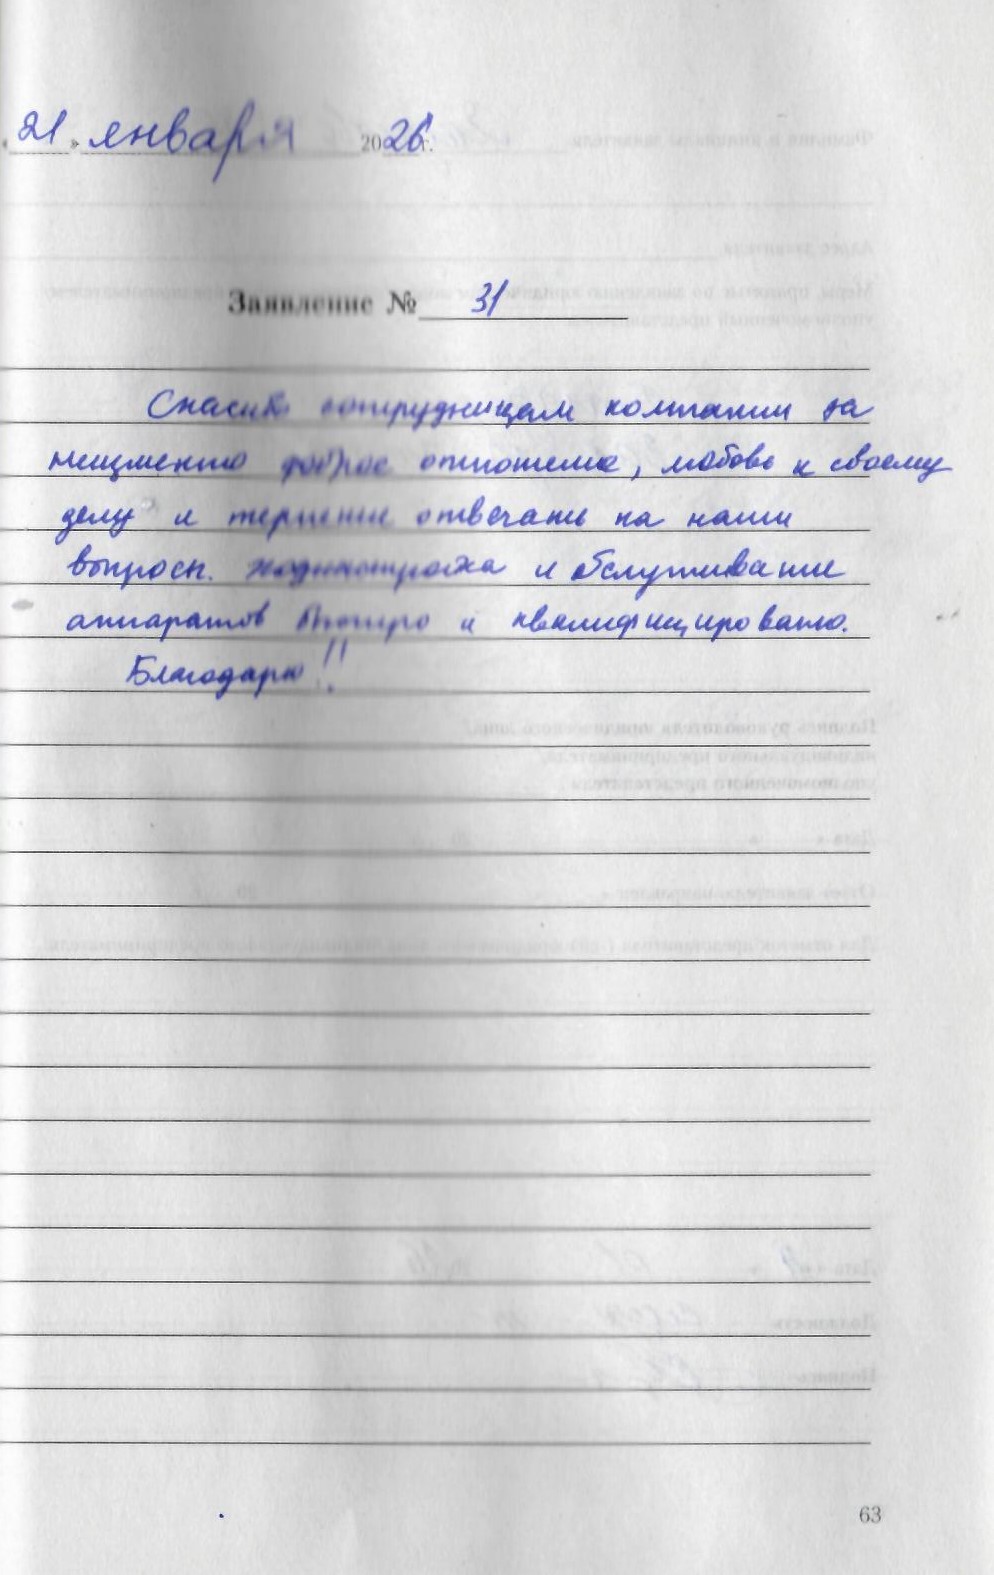 « 21 » января 2026 г.
Заявление № 31
Спасибо сотрудницам компании за
неизменно доброе отношение, любовь к своему
делу и терпение отвечать на наши
вопросы. и обслуживание
аппаратов быстро и квалифицировано.
Благодарю!!
63